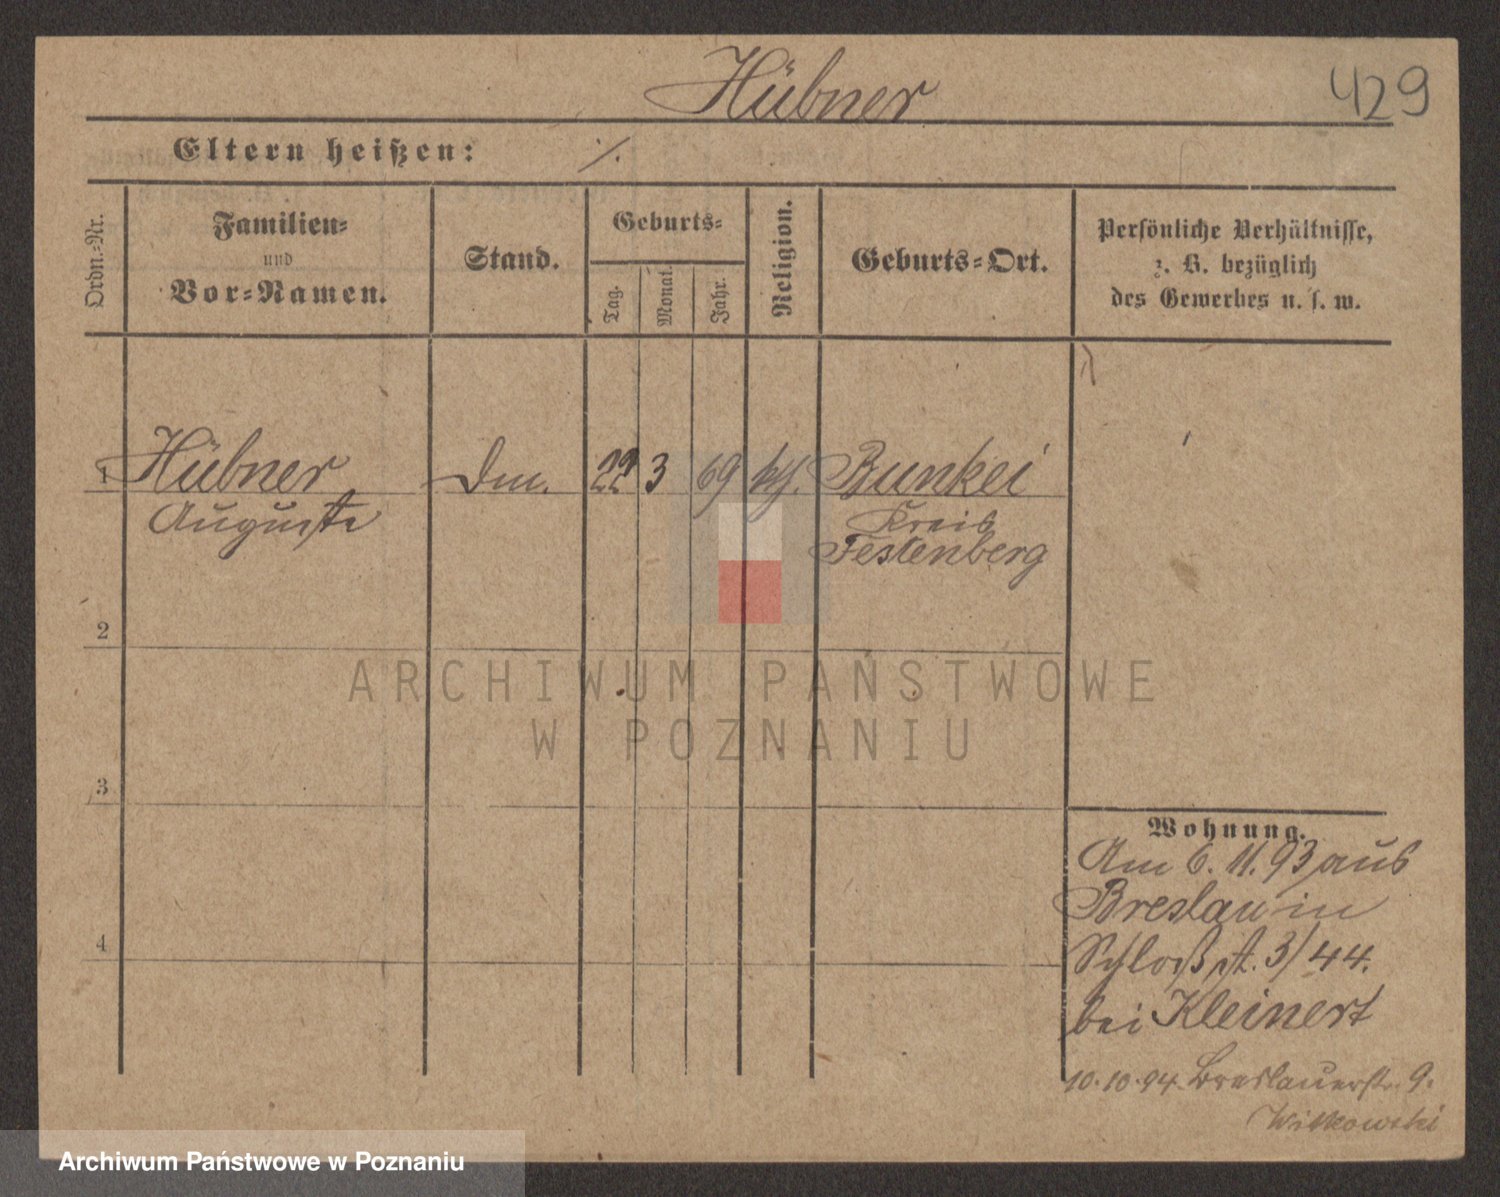 Hübner
429
Eltern heißen: ∕.
Ordn.-Nr.
Familien-
und
Vor-Namen.
Stand.
Geburts-
Tag.
Monat.
Jahr.
Religion.
Geburts-Ort.
Persönliche Verhältnisse,
z. B. bezüglich
des Gewerbes u. s. w.
1 Hübner 22 3 69 kth. Bunkei
Auguste Kreis
Festenberg
2
3
4
Wohnung.
Am 6. 11. 93 aus
Breslau in
Schloßst. 3/44.
bei Kleinert
10.10.94. Breslauerstr. 9.
Witkowski
ARCHIWUM PAŃSTWOWE
W POZNANIU
Archiwum Państwowe w Poznaniu